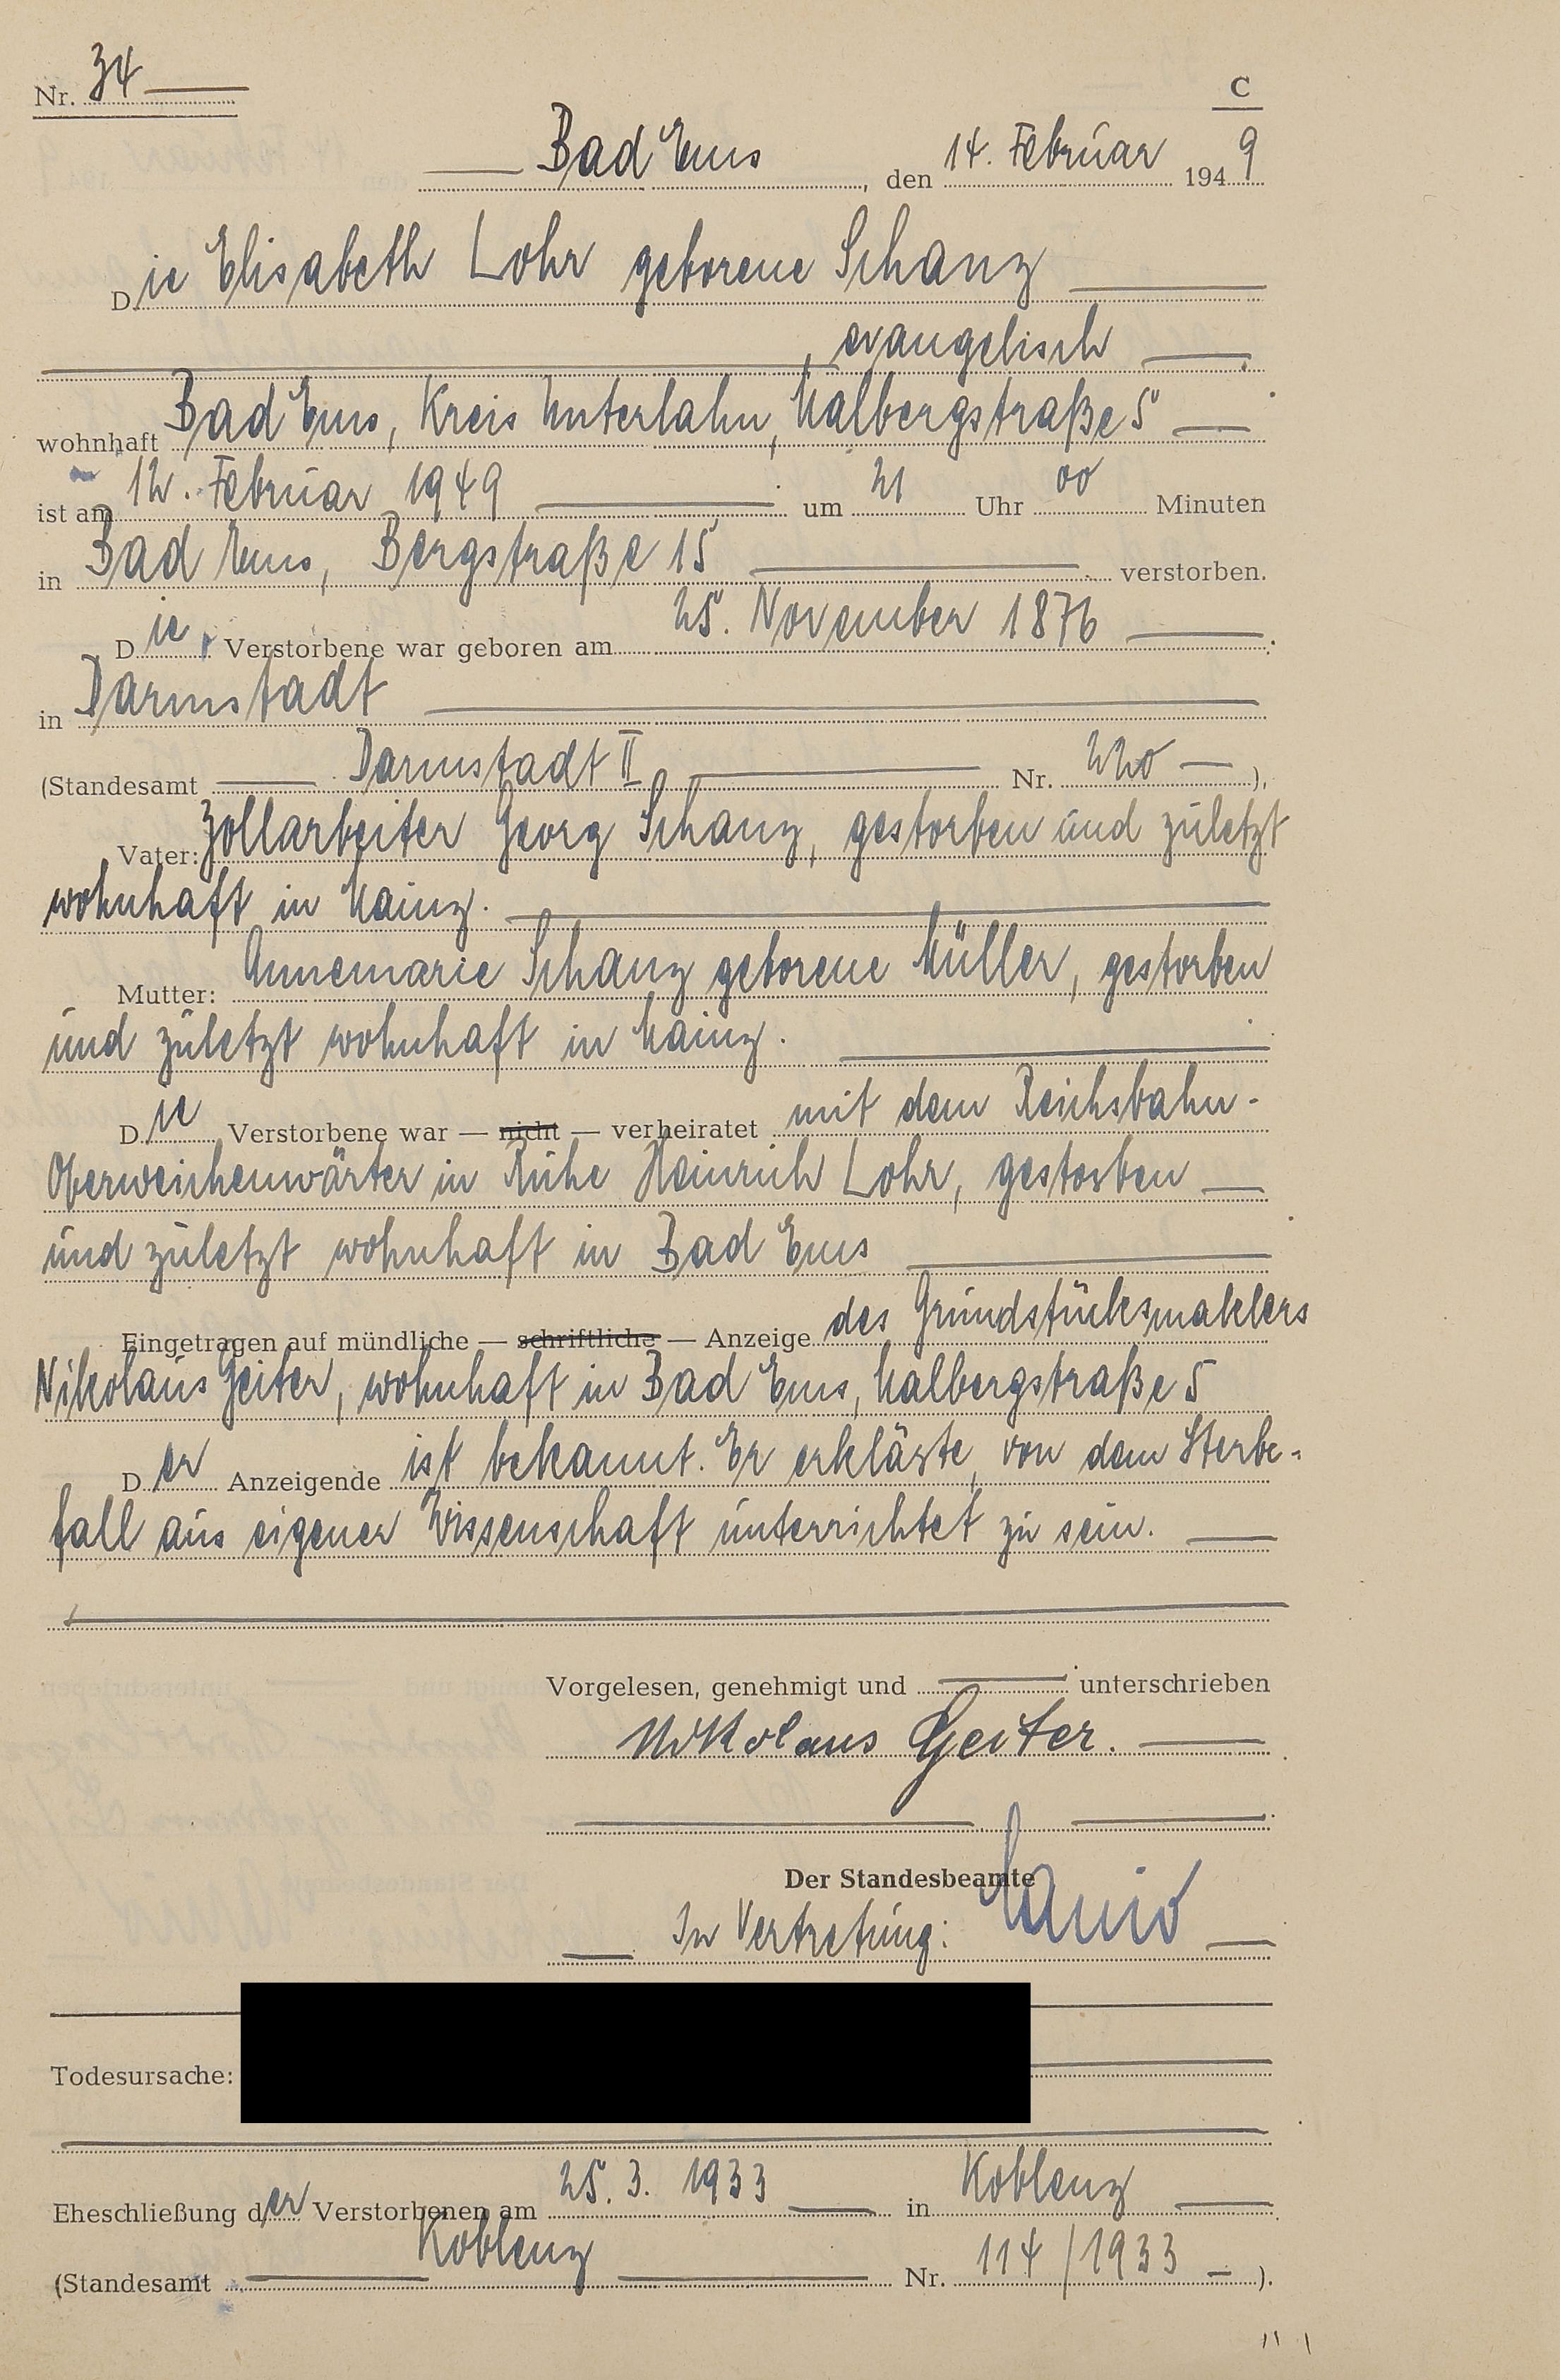 Nr. 34
C
Bad Ems, den 14. Februar 1949
Die Elisabeth Lohr geborene Schanz
, evangelisch
wohnhaft Bad Ems, Kreis Unterlahn, Malbergstraße 5
ist am 12. Februar 1949 um 21 Uhr 00 Minuten
in Bad Ems, Bergstraße 15 verstorben.
Die Verstorbene war geboren am 25. November 1876
in Darmstadt
(Standesamt Darmstadt II Nr. 220),
Vater: Zollarbeiter Georg Schanz, gestorben und zuletzt
wohnhaft in Mainz.
Mutter: Annemarie Schanz geborene Müller, gestorben
und zuletzt wohnhaft in Mainz.
Die Verstorbene war — nicht — verheiratet mit dem Reichsbahn-
Oberweichenwärter in Ruhe Heinrich Lohr, gestorben
und zuletzt wohnhaft in Bad Ems
Eingetragen auf mündliche — schriftliche — Anzeige des Grundstücksmaklers
Nikolaus Geiter, wohnhaft in Bad Ems, Malbergstraße 5
Der Anzeigende ist bekannt. Er erklärte, von dem Sterbe-
fall aus eigener Wissenschaft unterrichtet zu sein.
Vorgelesen, genehmigt und unterschrieben
Nikolaus Geiter.
Der Standesbeamte
In Vertretung:
Todesursache:
Eheschließung der Verstorbenen am 25. 3. 1933 in Koblenz
(Standesamt Koblenz Nr. 114/1933).